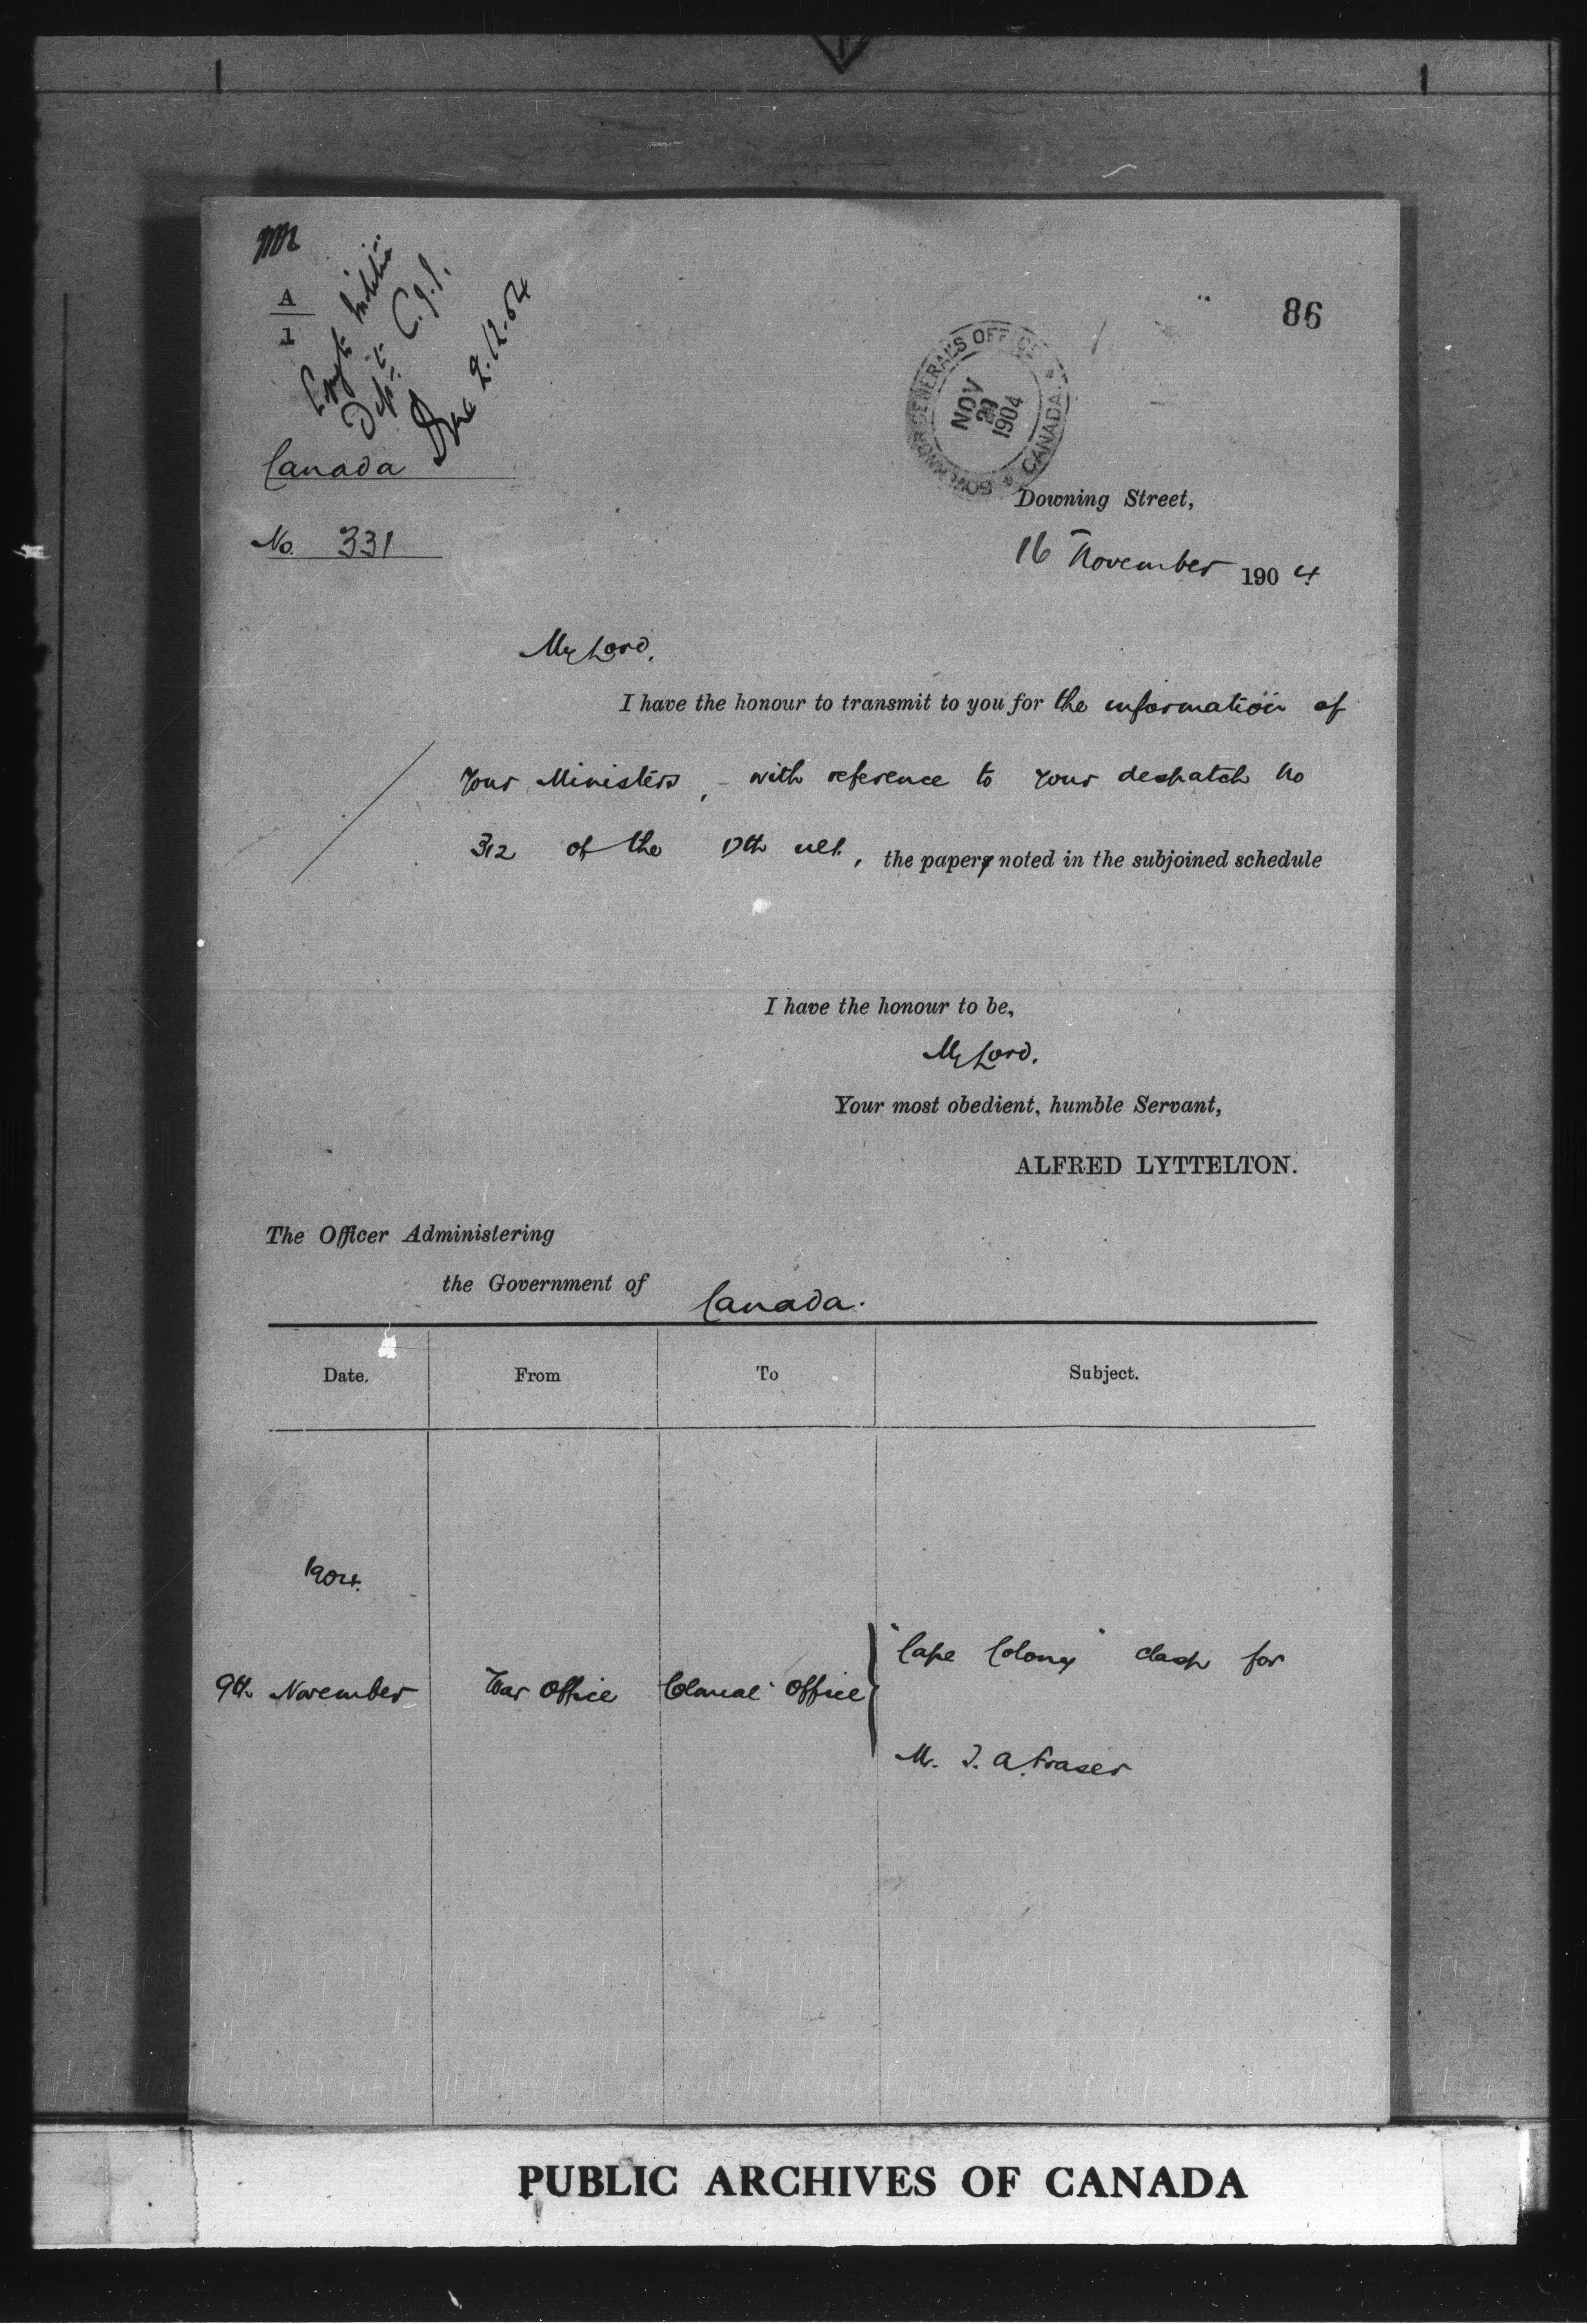 A
1
Copy to Militia
Dept.
2.12.04
86
GOVERNOR GENERAL'S OFFICE
CANADA
NOV
1904
Canada
No. 331
Downing Street,
16 November 1904.
My Lord,
I have the honour to transmit to you for the information of
Your Ministers, with reference to Your despatch No
312 of the 17th ult., the paper noted in the subjoined schedule
I have the honour to be,
My Lord,
Your most obedient, humble Servant,
ALFRED LYTTELTON.
The Officer Administering
the Government of Canada.
Date. From To Subject.
1904.
9th November War Office Colonial Office "Cape Colony" clasp for
Mr. J. A. Fraser
PUBLIC ARCHIVES OF CANADA